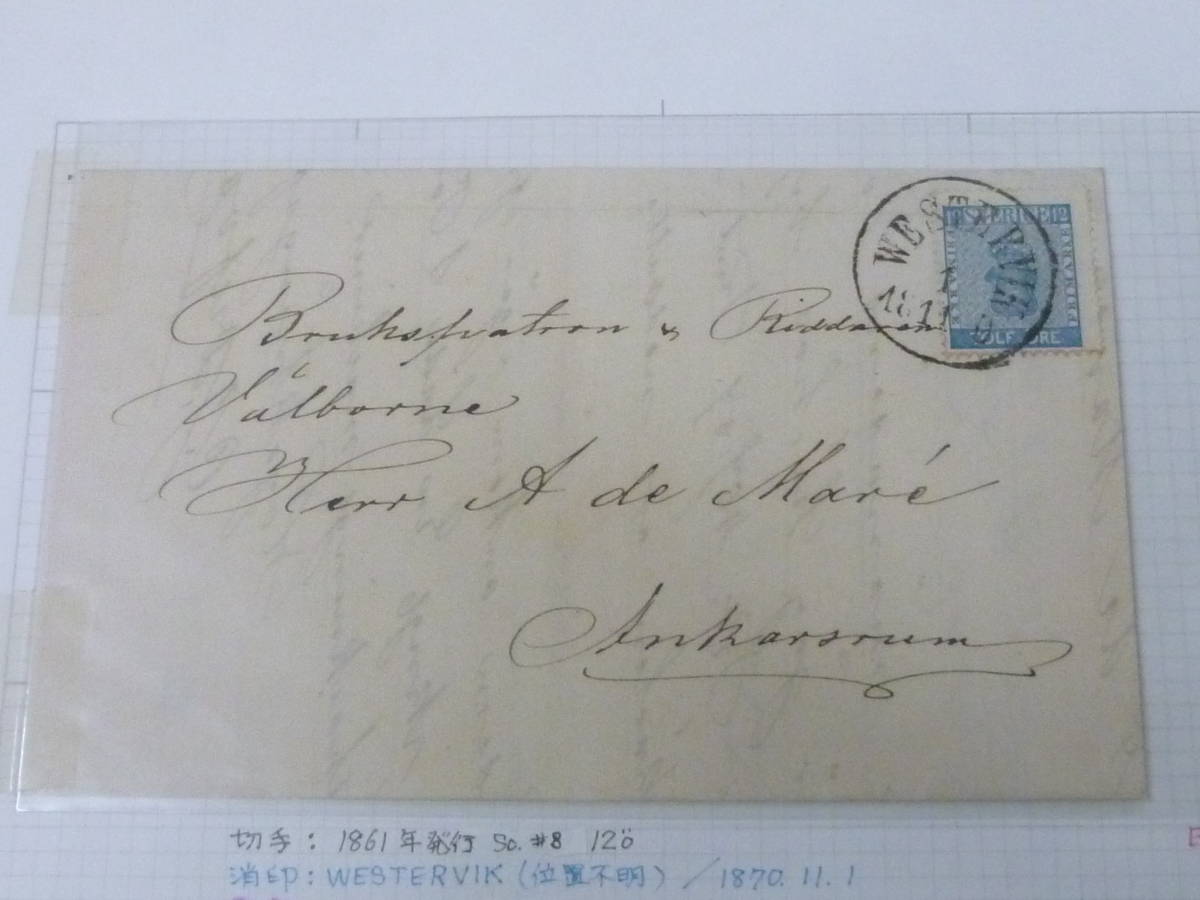 WESTERVIK
1
18 11
12 SVERIGE 12
FRIMÄRKE
TOLF ÖRE
Brukspatron & Riddaren
Välborne
Herr A de Maré
Ankarsrum
切手: 1861年発行 Sc. #8 12ö
消印: WESTERVIK (位置不明) / 1870. 11. 1